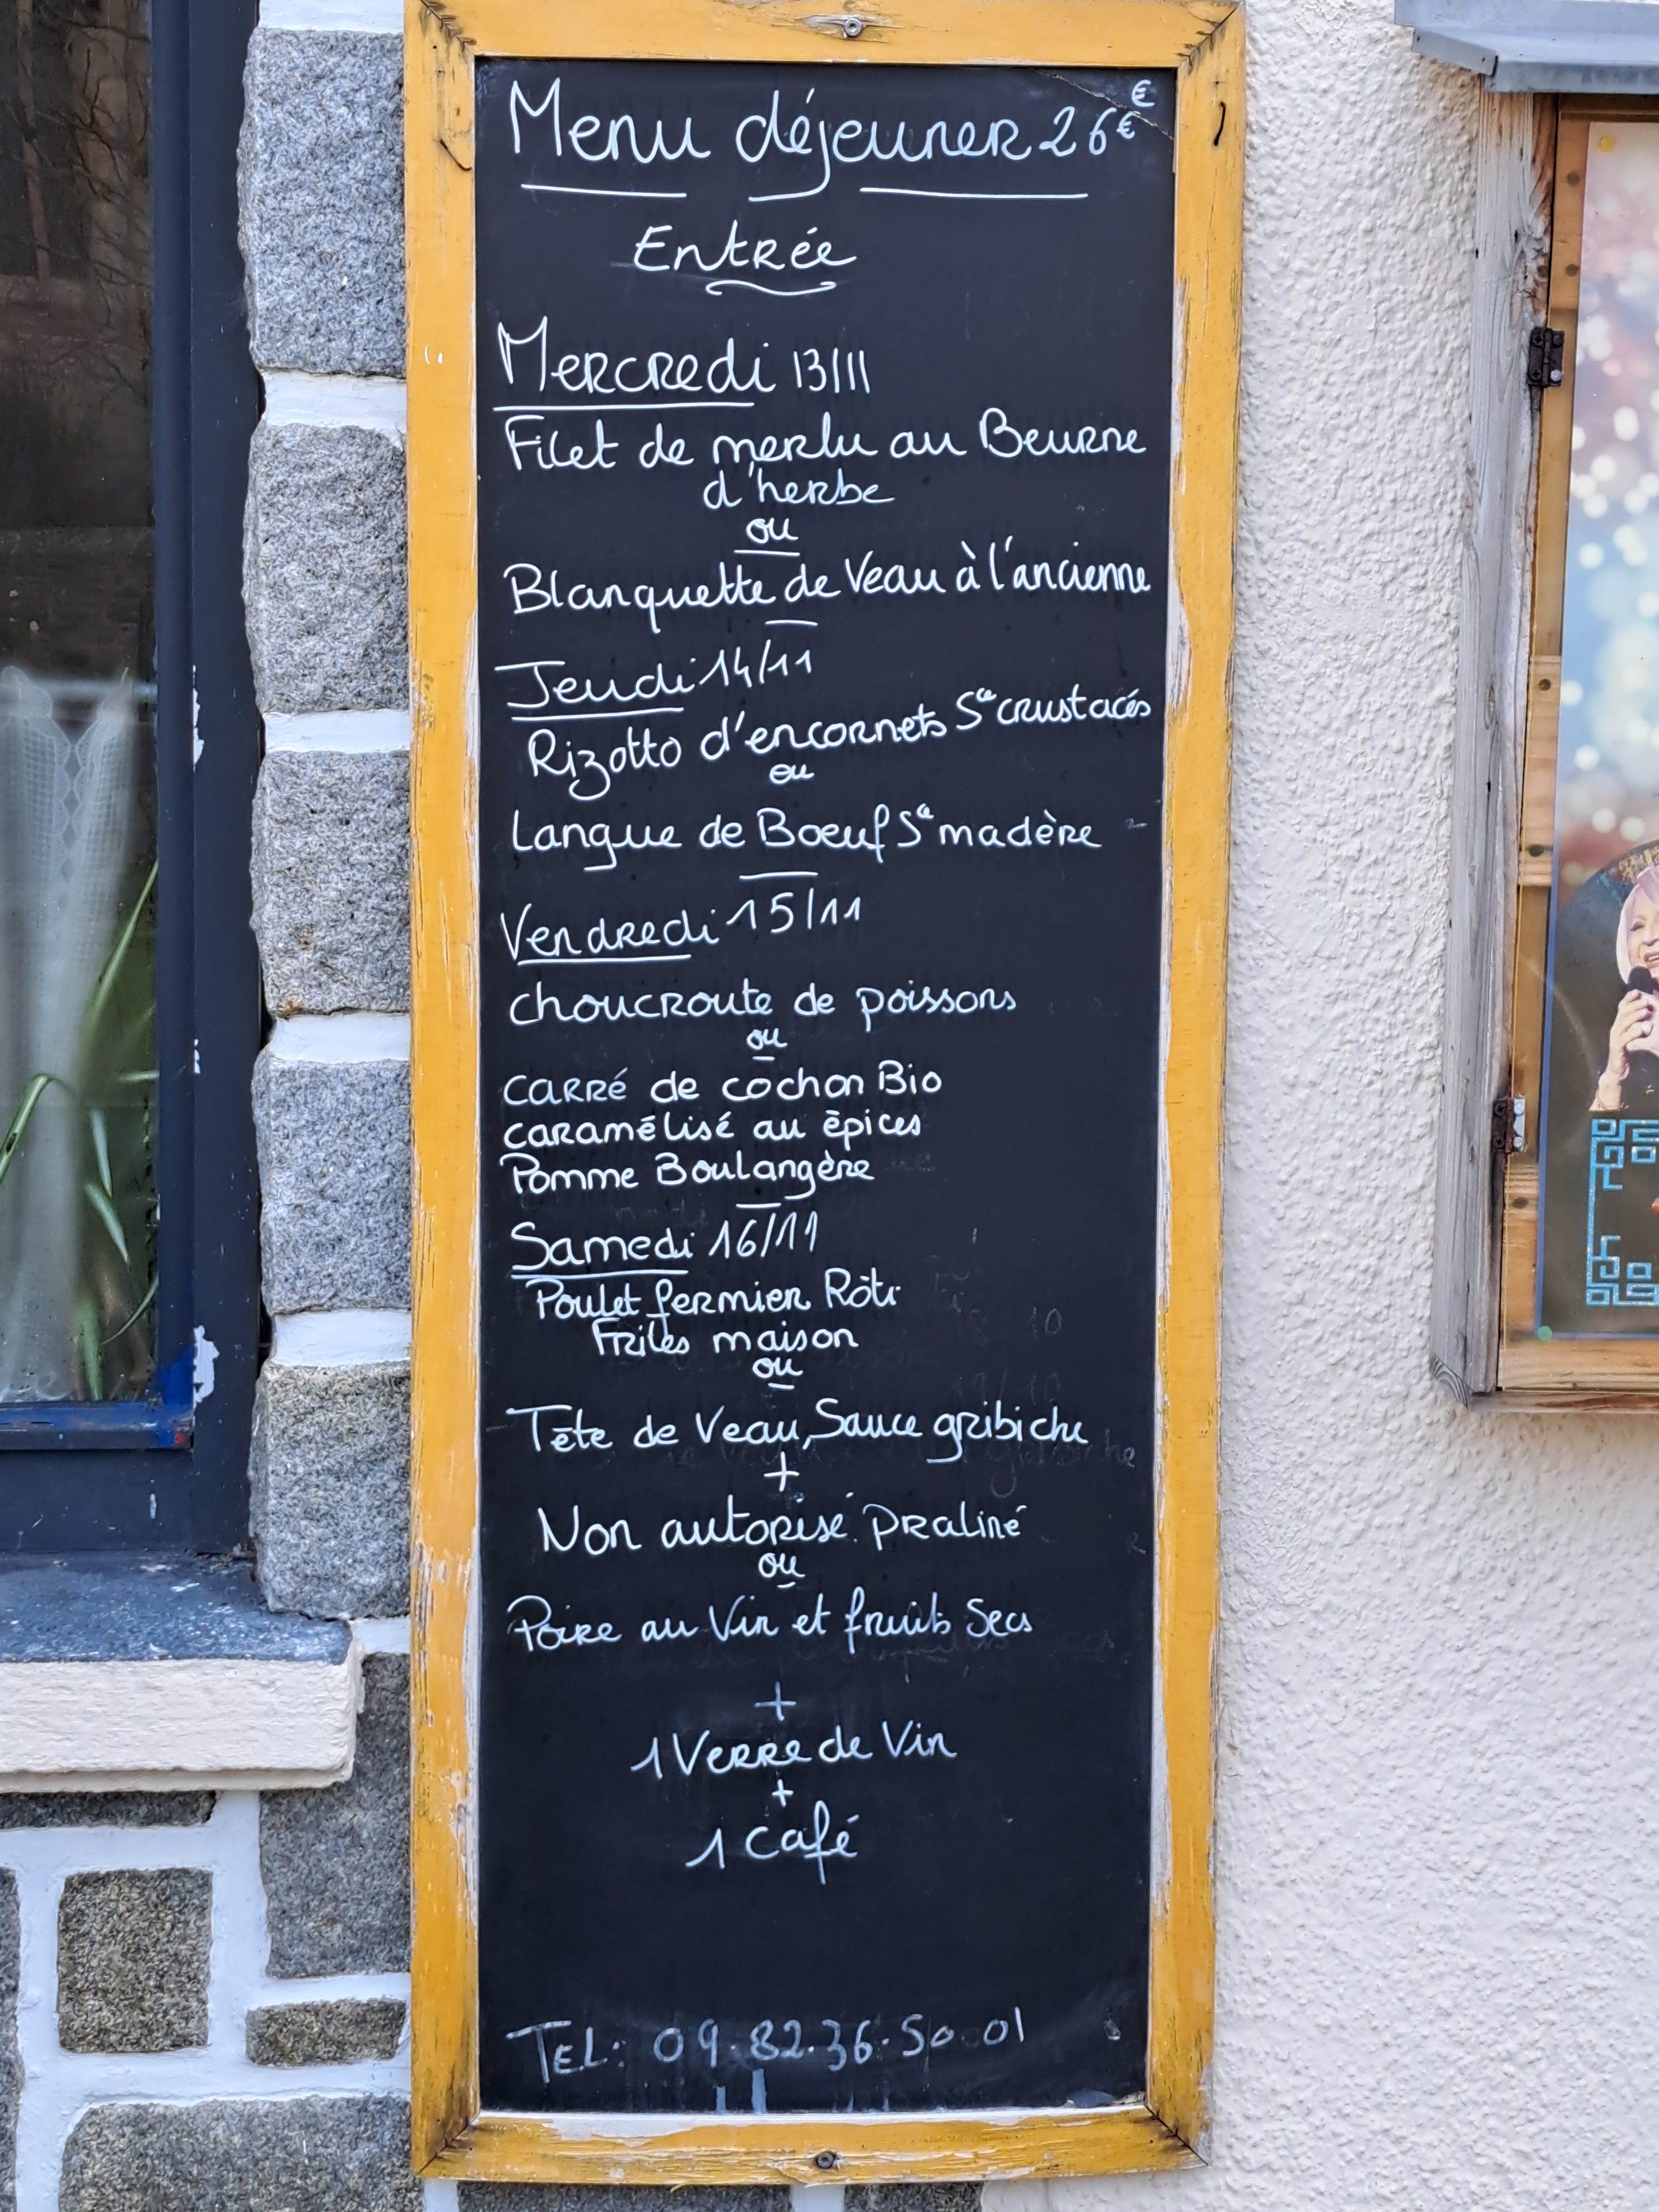 Menu déjeuner 26€
€
Entrée
Mercredi 13/11
Filet de merlu au Beurre
d'herbe
ou
Blanquette de Veau à l'ancienne
Jeudi 14/11
Rizotto d'encornets Sce crustacés
ou
Langue de Boeuf Sce madère
Vendredi 15/11
choucroute de poissons
ou
carré de cochon Bio
caramélisé au èpices
Pomme Boulangère
Samedi 16/11
Poulet fermier Rôti
Frites maison
ou
Tête de Veau, Sauce gribiche
+
Non autorisé praliné
ou
Poire au Vin et fruits Secs
+
1 Verre de Vin
+
1 café
TEL: 09.82.36.50.01